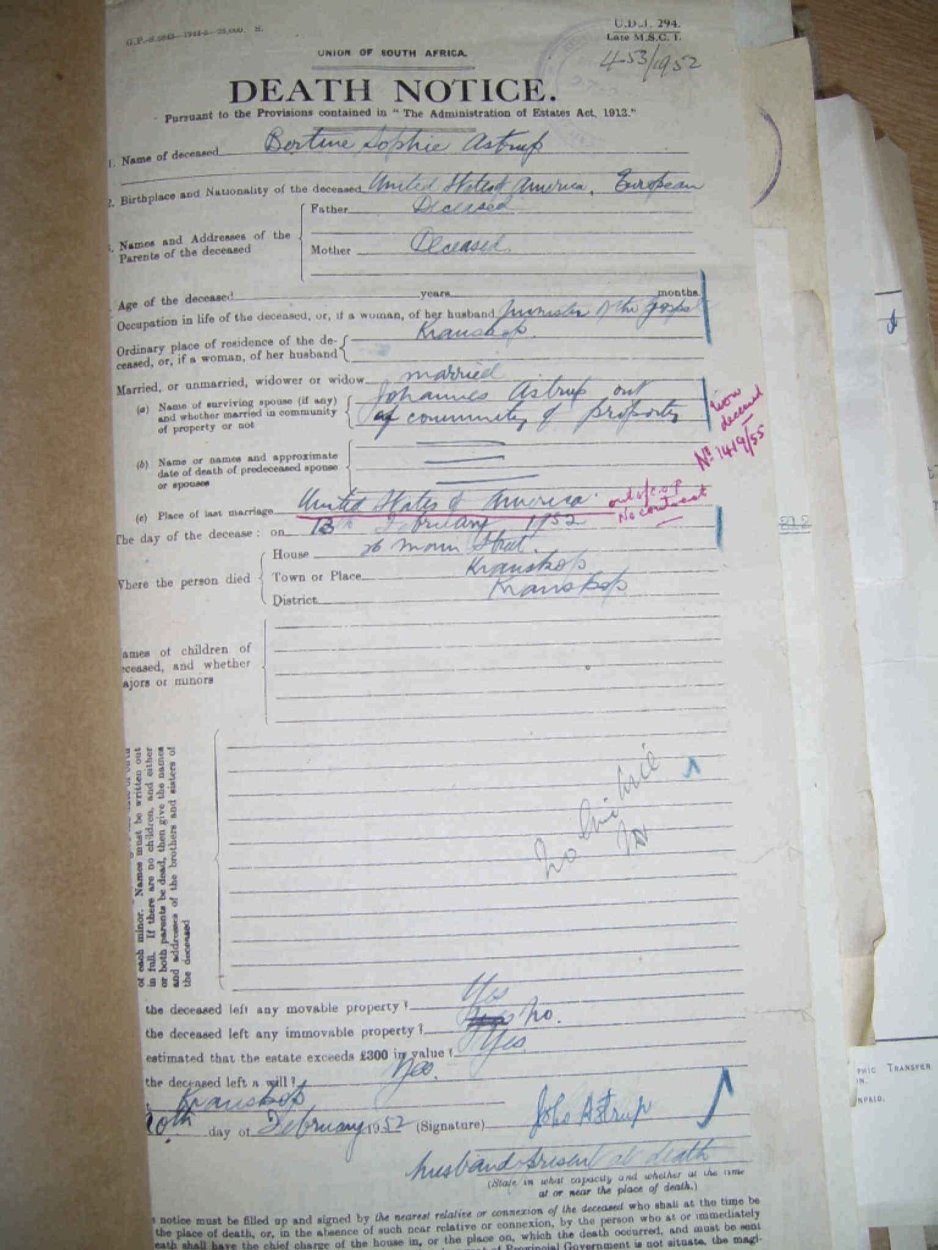 U.D.J. 294.
Late M.S.C. 1.
453/1952
UNION OF SOUTH AFRICA.
DEATH NOTICE.
Pursuant to the Provisions contained in "The Administration of Estates Act, 1913."
1. Name of deceased Bertine Sophie Astrup
2. Birthplace and Nationality of the deceased United States of America, European
Names and Addresses of the Parents of the deceased
Father Deceased
Mother Deceased.
Age of the deceased years months
Occupation in life of the deceased, or, if a woman, of her husband minister of the gospel
Ordinary place of residence of the de-
ceased, or, if a woman, of her husband
Kranskop.
Married, or unmarried, widower or widow married
(a) Name of surviving spouse (if any)
and whether married in community
of property or not
Johannes Astrup out
of community of property
now
deceased
No 1419/55
(b) Name or names and approximate
date of death of predeceased spouse
or spouses
(c) Place of last marriage United States of America.
out of c. of p
No contract
The day of the decease: on 13th February 1952
Where the person died
House 26 Main Street.
Town or Place Kranskop
District Kranskop
ames of children of
eceased, and whether
ajors or minors
of each minor. Names must be written out
in full. If there are no children, and either
or both parents be dead, then give the names
and addresses of the brothers and sisters of
the deceased
No
the deceased left any movable property? Yes
the deceased left any immovable property? No.
estimated that the estate exceeds £300 in value? Yes
the deceased left a will? Yes.
Kranskop
day of February 1952 (Signature) Johs Astrup
husband present at death
(State in what capacity and whether at the time
at or near the place of death.)
notice must be filled up and signed by the nearest relative or connexion of the deceased who shall at the time be
the place of death, or, in the absence of such near relative or connexion, by the person who at or immediately
eath shall have the chief charge of the house in, or the place on, which the death occurred, and must be sent
of Provincial Government is not situate, the magi-
PHIC TRANSFER